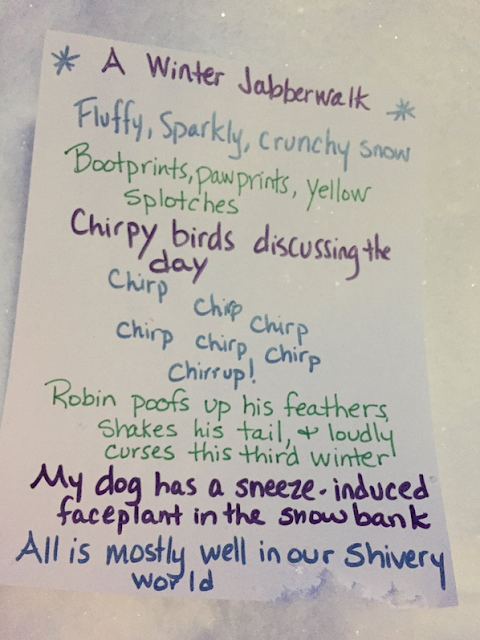 * A Winter Jabberwalk *
Fluffy, Sparkly, crunchy snow
Bootprints, pawprints, yellow
splotches
Chirpy birds discussing the
day
Chirp
Chirp
Chirp
Chirp chirp chirp
Chirrup!
Robin poofs up his feathers,
shakes his tail, & loudly
curses this third winter
My dog has a sneeze-induced
faceplant in the snowbank
All is mostly well in our Shivery
world